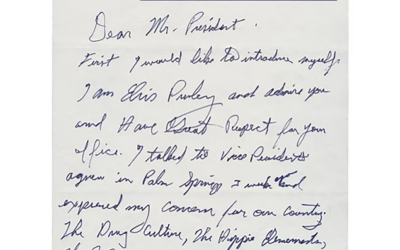 Dear Mr. President.
First I would like to introduce myself.
I am Elvis Presley and admire you
and Have Great Respect for your
office. I talked to Vice President
Agnew in Palm Springs 3 weeks ago and
expressed my concern for our country.
The Drug Culture, The Hippie Elements,